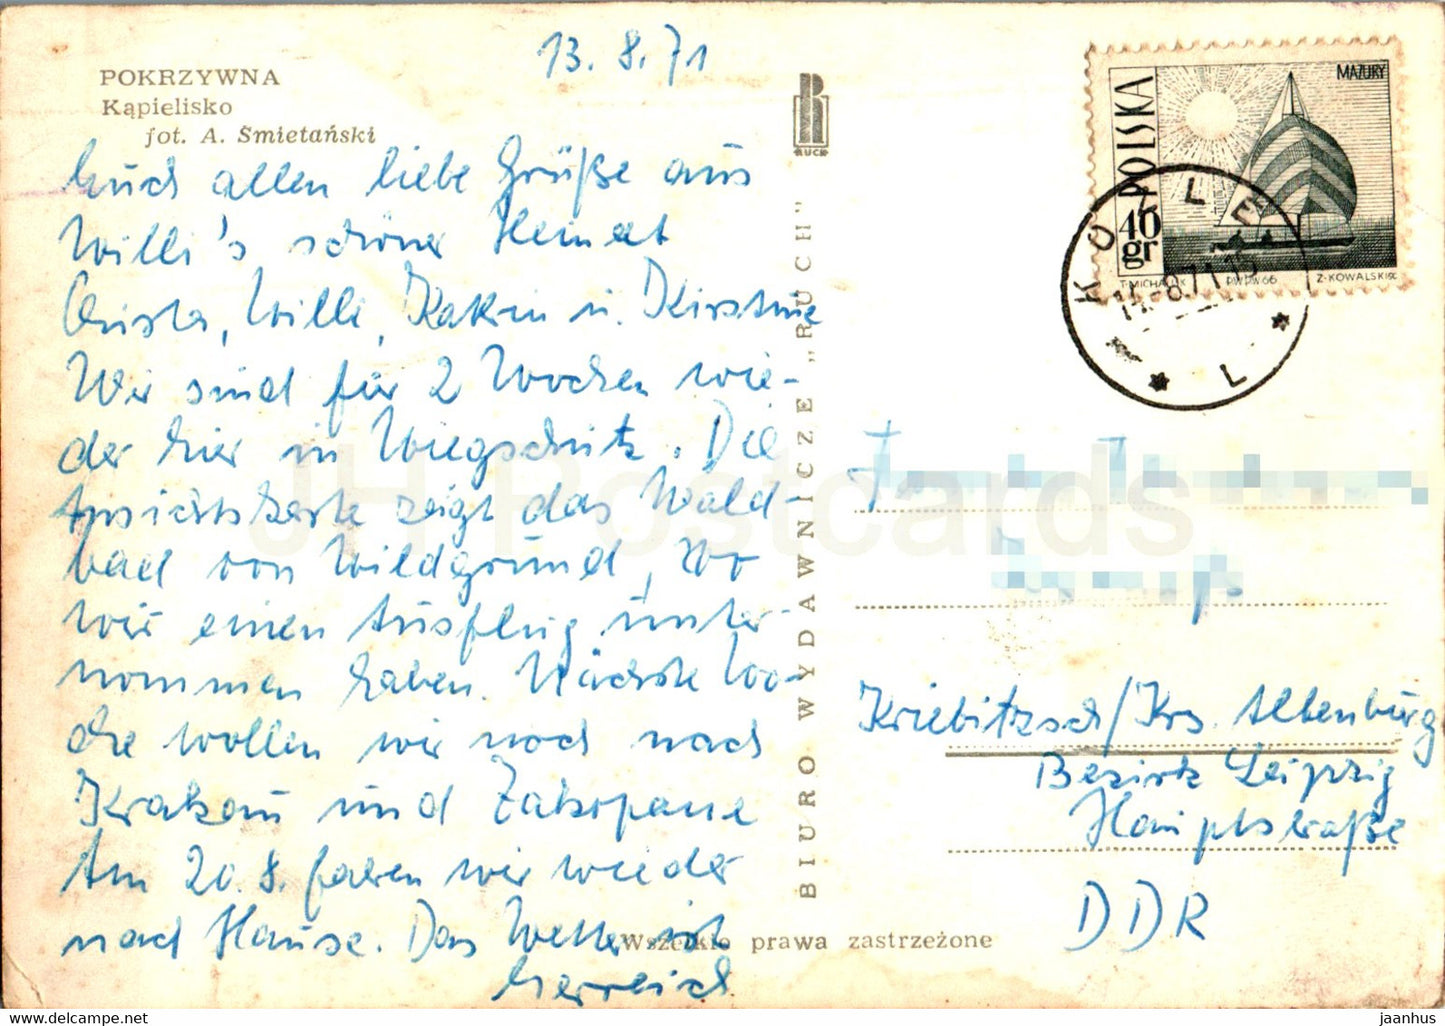 13. 8. 71
POKRZYWNA
Kąpielisko
fot. A. Śmietański
Euch allen liebe Grüße aus
Willi's schöner Heimat
Christa, Willi, Katrin u. Kirstine
Wir sind für 2 Wochen wie-
der hier in Wiegschütz. Die
Ansichtskarte zeigt das Wald-
bad von Wildgrund, wo
wir einen Ausflug unter-
nommen haben. Nächste Wo-
che wollen wir noch nach
Krakau und Zakopane
Am 20. 8. fahren wir wieder
nach Hause. Das Wetter ist
herrlich
Wszelkie prawa zastrzeżone
RUCH
BIURO WYDAWNICZE „RUCH"
POLSKA
40 gr
MAZURY
T. MICHALUK PWPW 66 Z. KOWALSKI SC.
KOŹLE
8 71 15
L
Kriebitzsch/Krs. Altenburg
Bezirk Leipzig
Hauptstraße
DDR
JH Postcards
https://www.jhpostcards.com
jaanhus